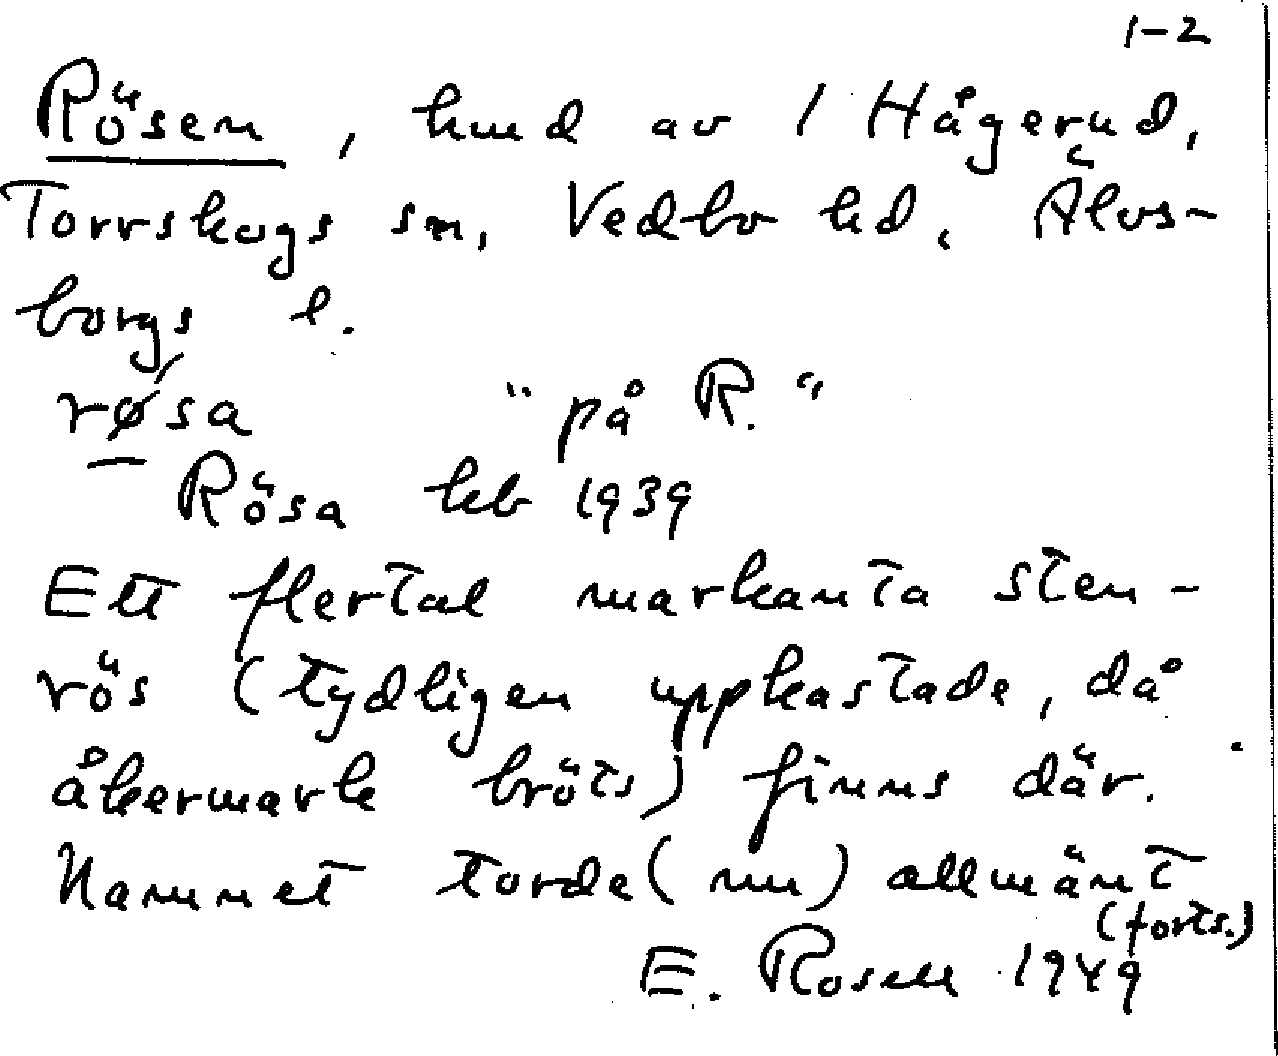 1-2
Rösen, hmd av 1 Hågerud,
Torrskogs sn, Vedbo hd, Älvs-
borgs l.
rǿsa "på R."
Rösa kb 1939
Ett flertal markanta sten-
rös (tydligen uppkastade, då
åkermark bröts) finns där.
Namnet torde (nu) allmänt
(forts.)
E. Rosell 1949